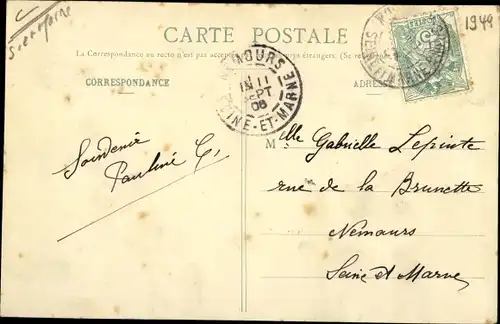 Seine et Marne
CARTE POSTALE
1944
La Correspondance au recto n'est pas acceptée
étrangers. (Se
CORRESPONDANCE
ADRESSE
NEMOURS
11
SEPT
08
SEINE-ET-MARNE
Souvenir
Pauline G,
Mlle Gabrielle Lepinte
rue de la Brunette
Nemours
Seine et Marne